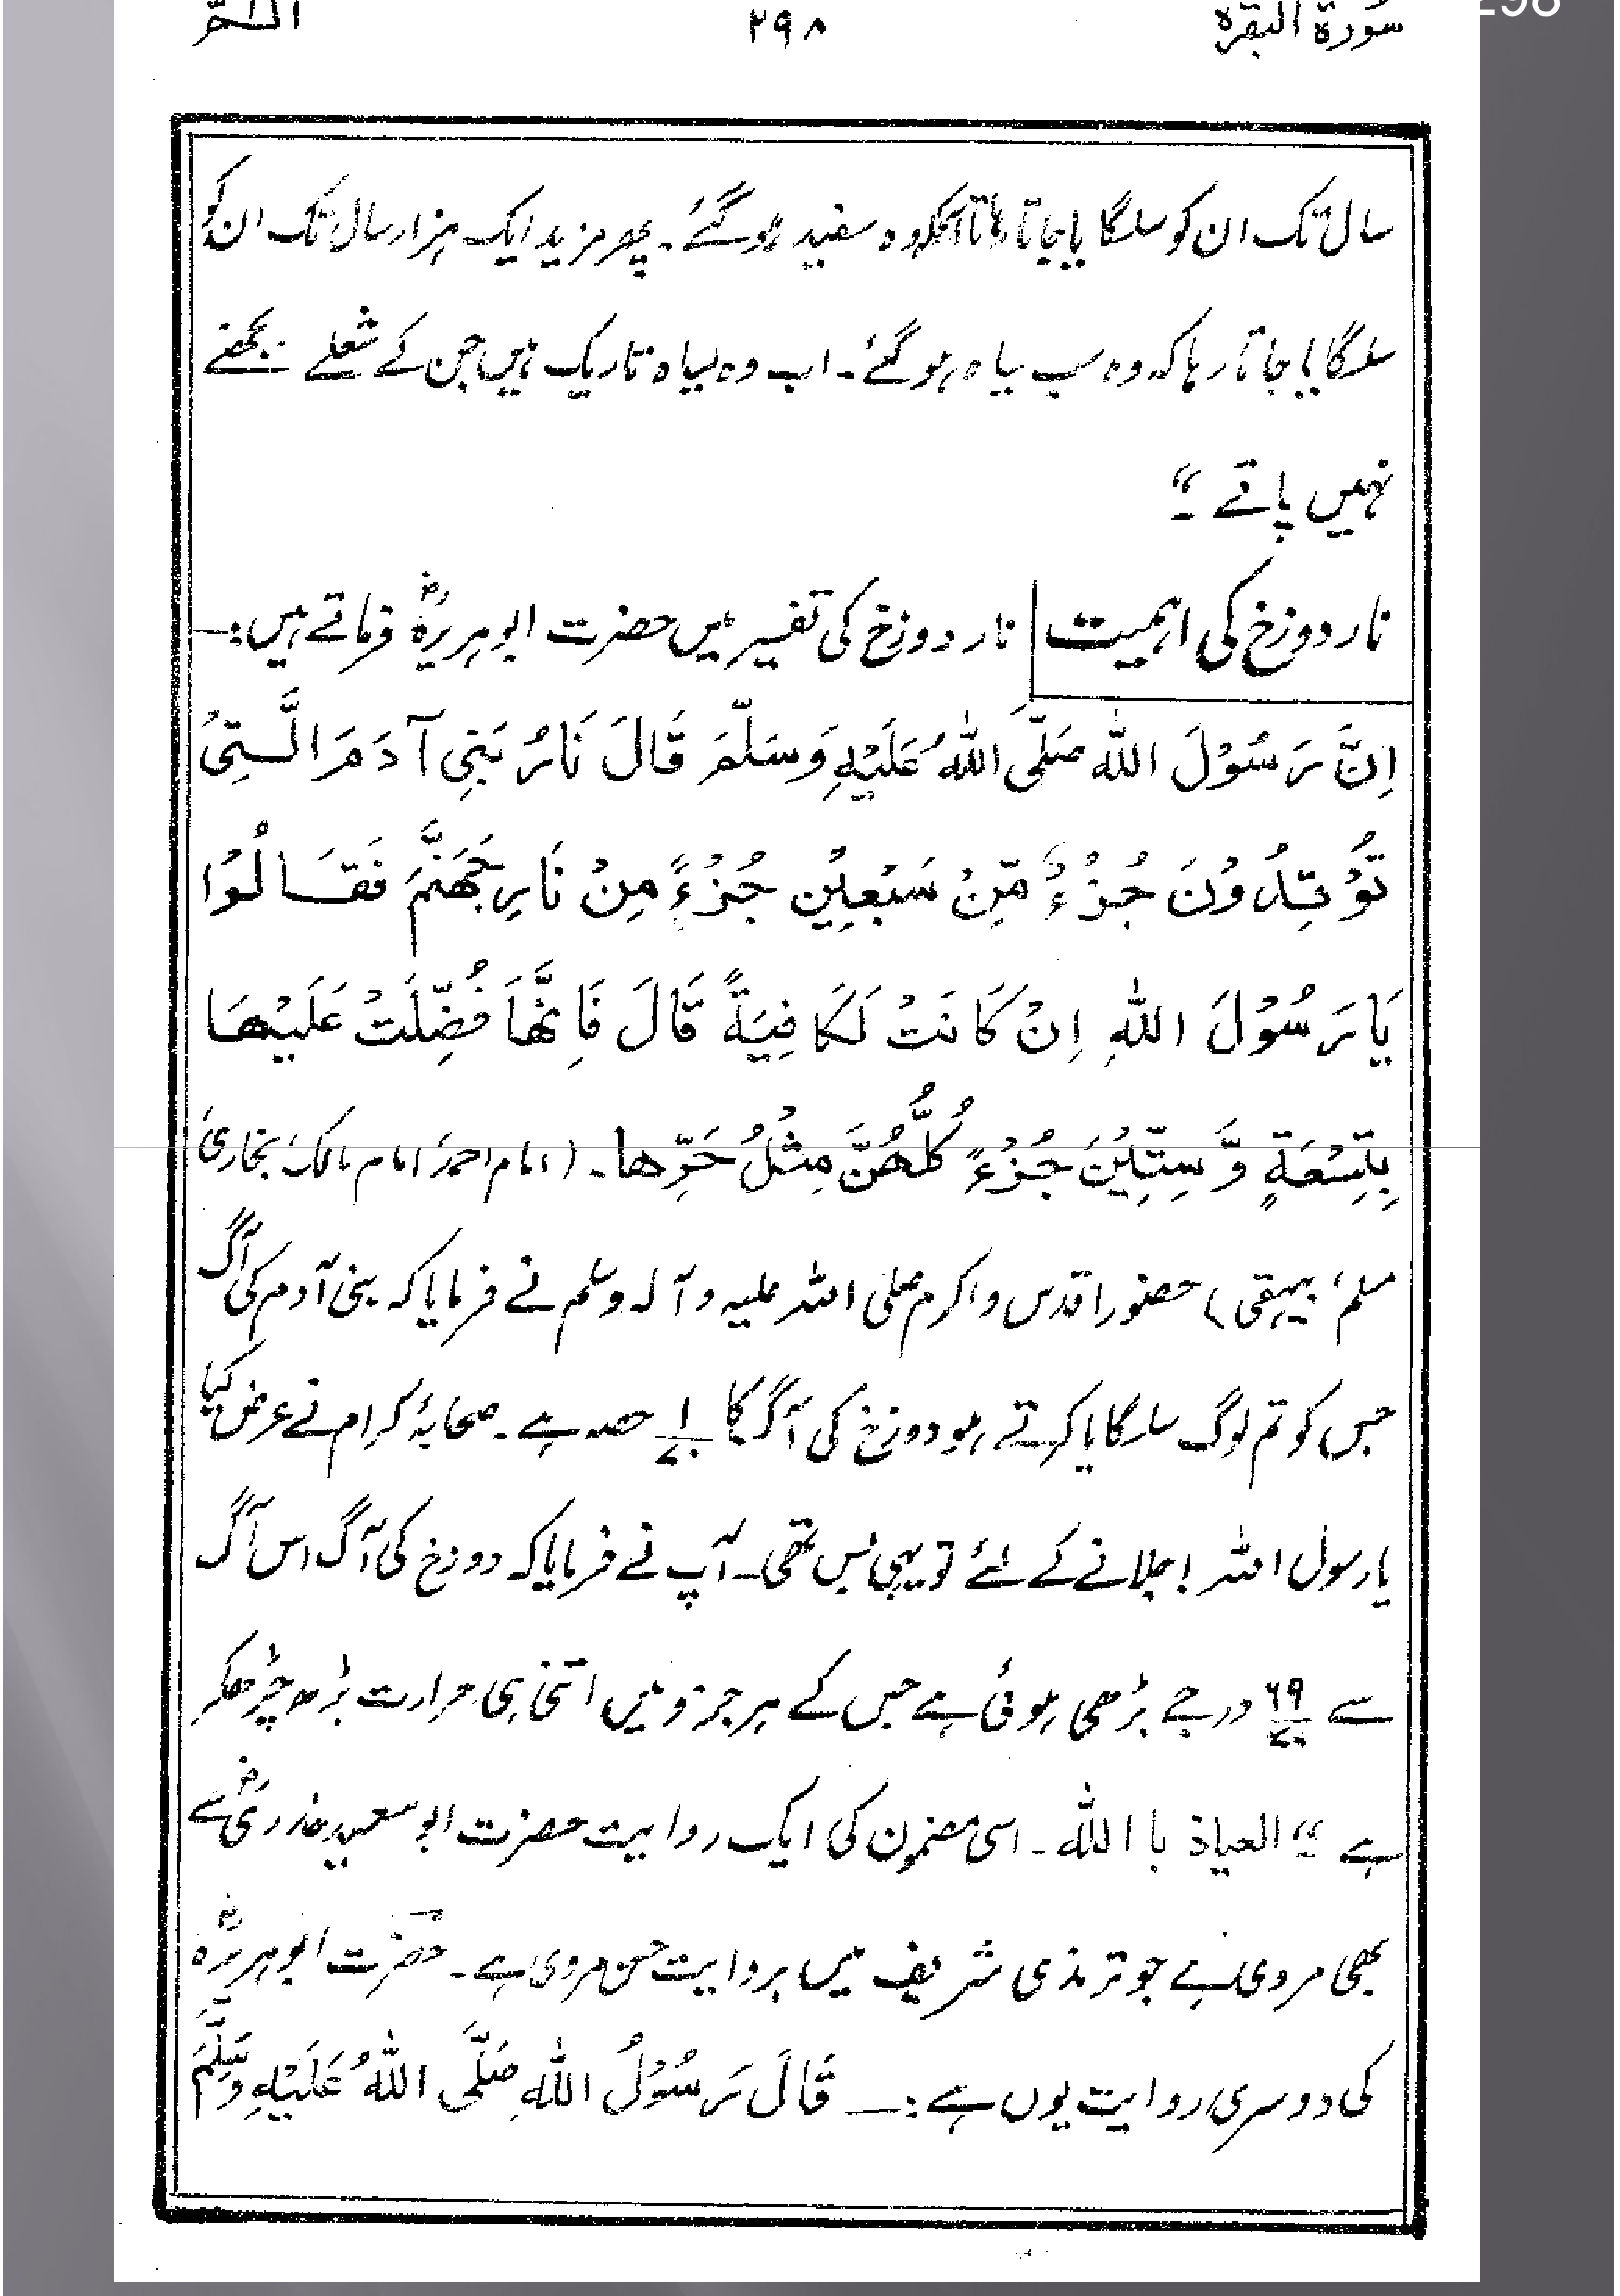 سورة البقره ۲۹۸ الــمّ 298
سال تک ان کو سلگایا جاتا رہا تاآنکہ وہ سفید ہوگئے۔ پھر مزید ایک ہزار سال تک ان کو
سلگایا جاتا رہا کہ وہ سب سیاہ ہوگئے۔ اب وہ سیاہ تاریک ہیں جن کے شعلے بجھنے
نہیں پاتے۔"
نار دوزخ کی اہمیت نار دوزخ کی تفسیر میں حضرت ابوہریرہؓ فرماتے ہیں:—
اِنَّ رَسُوْلَ اللّٰه صَلَّی اللّٰهُ عَلَیْهِ وَسَلَّمَ قَالَ نَارُ بَنِی آدَمَ الَّتِیُ
تُوْقِدُوْنَ جُزْءٌ مِّنْ سَبْعِیْنِ جُزْءً مِنْ نَارِ جَهَنَّمَ فَقَالُوْا
یَا رَسُوْلَ اللّٰهِ اِنْ کَانَتْ لَکَافِیَةً قَالَ فَاِنَّهَا فُضِّلَتْ عَلَیْهَا
بِتِسْعَةٍ وَّ سِتِّیْنَ جُزْءً کُلُّهُنَّ مِثْلُ حَرِّها۔ (امام احمدؒ، امام مالکؒ، بخاریؒ
مسلم، بیہقی) حضور اقدس و اکرم صلی اللہ علیہ و آلہ وسلم نے فرمایا کہ بنی آدم کی آگ
جس کو تم لوگ سلگایا کرتے ہو دوزخ کی آگ کا ۱/۷۰ حصہ ہے۔ صحابۂ کرام نے عرض کیا
یا رسول اللہ! جلانے کے لئے تو یہی بس تھی۔ آپ نے فرمایا کہ دوزخ کی آگ اس آگ
سے ۶۹/۷۰ درجے بڑھی ہوئی ہے جس کے ہر جزو میں اتنی ہی حرارت بڑھ چڑھکر
ہے۔" العیاذ با اللّٰه۔ اسی مضمون کی ایک روایت حضرت ابو سعید خدریؓ سے
بھی مروی ہے جو ترمذی شریف میں بروایت حسن مروی ہے۔ حضرت ابوہریرہؓ
کی دوسری روایت یوں ہے:— قَالَ رَسُوْلُ اللّٰهِ صَلَّی اللّٰهُ عَلَیْهِ وَسَلَّمَ